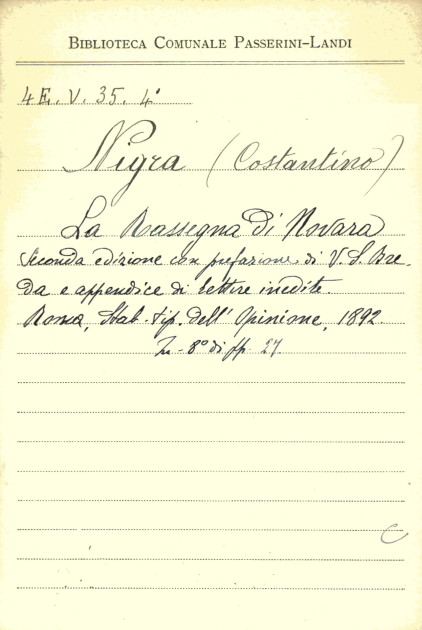 BIBLIOTECA COMUNALE PASSERINI-LANDI
4 E. V. 35. 4°
Nigra (Costantino)
La Rassegna di Novara
Seconda edizione con prefazione di V. S. Bre-
da e appendice di lettere inedite.
Roma, Stab. tip. dell' Opinione, 1892.
In-8° di pp. 27.
C